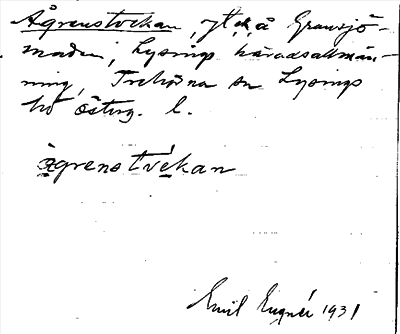 Ågrenstvekan, jte å Gransjö-
maden, Lysings häradsallmän-
ning, Trehörna sn Lysings
hd Österg. l.
ågrenstvékan
Emil Eugnér 1931